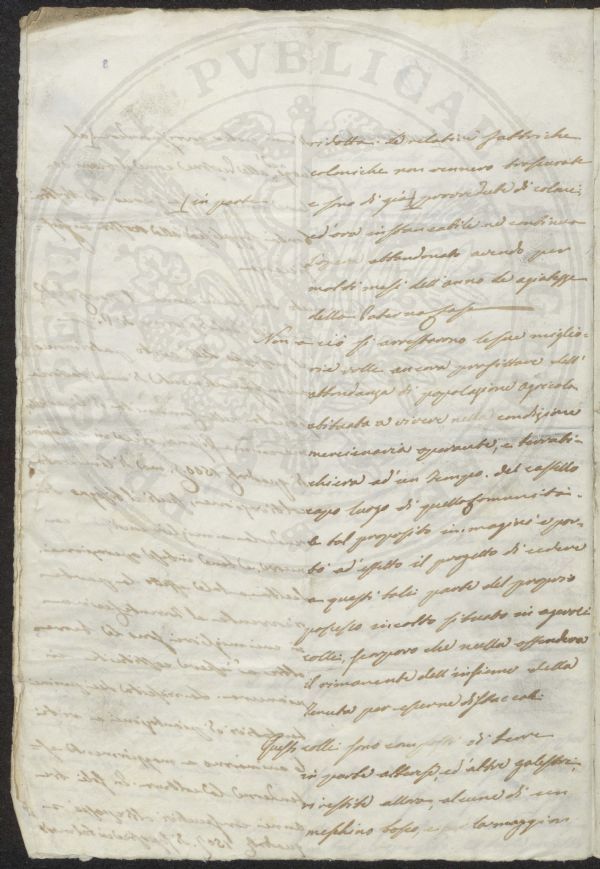 ridotta. Le relative fabbriche
coloniche non vennero trascurate
e sono di già provvedute di coloni;
in parte
ed ora instancabile ne continua
abbandonato avendo per
molti mesi dell'anno le agiatezze
della Paterna Casa
Non a ciò si arrestarono le sue miglio-
rie volle ancora profittare dell'
abbondanza di popolazione agricola
abituata a vivere nella condizione
mercenaria operante, e terrati-
chiera ad un tempo. del castello
capo luogo di quella Comunità.
A tal proposito immaginò e por-
tò ad effetto il progetto di cedere
a questi tali parte del proprio
possesso incolto situato in
colli, sempre che nulla offendeva
il rimanente dell'insieme della
Tenuta per esserne distaccati.
Questi colli sono composti di terre
in parte alberesi, ed altre galestri,
rivestite allora, alcune di un
meschino bosco, e la maggior